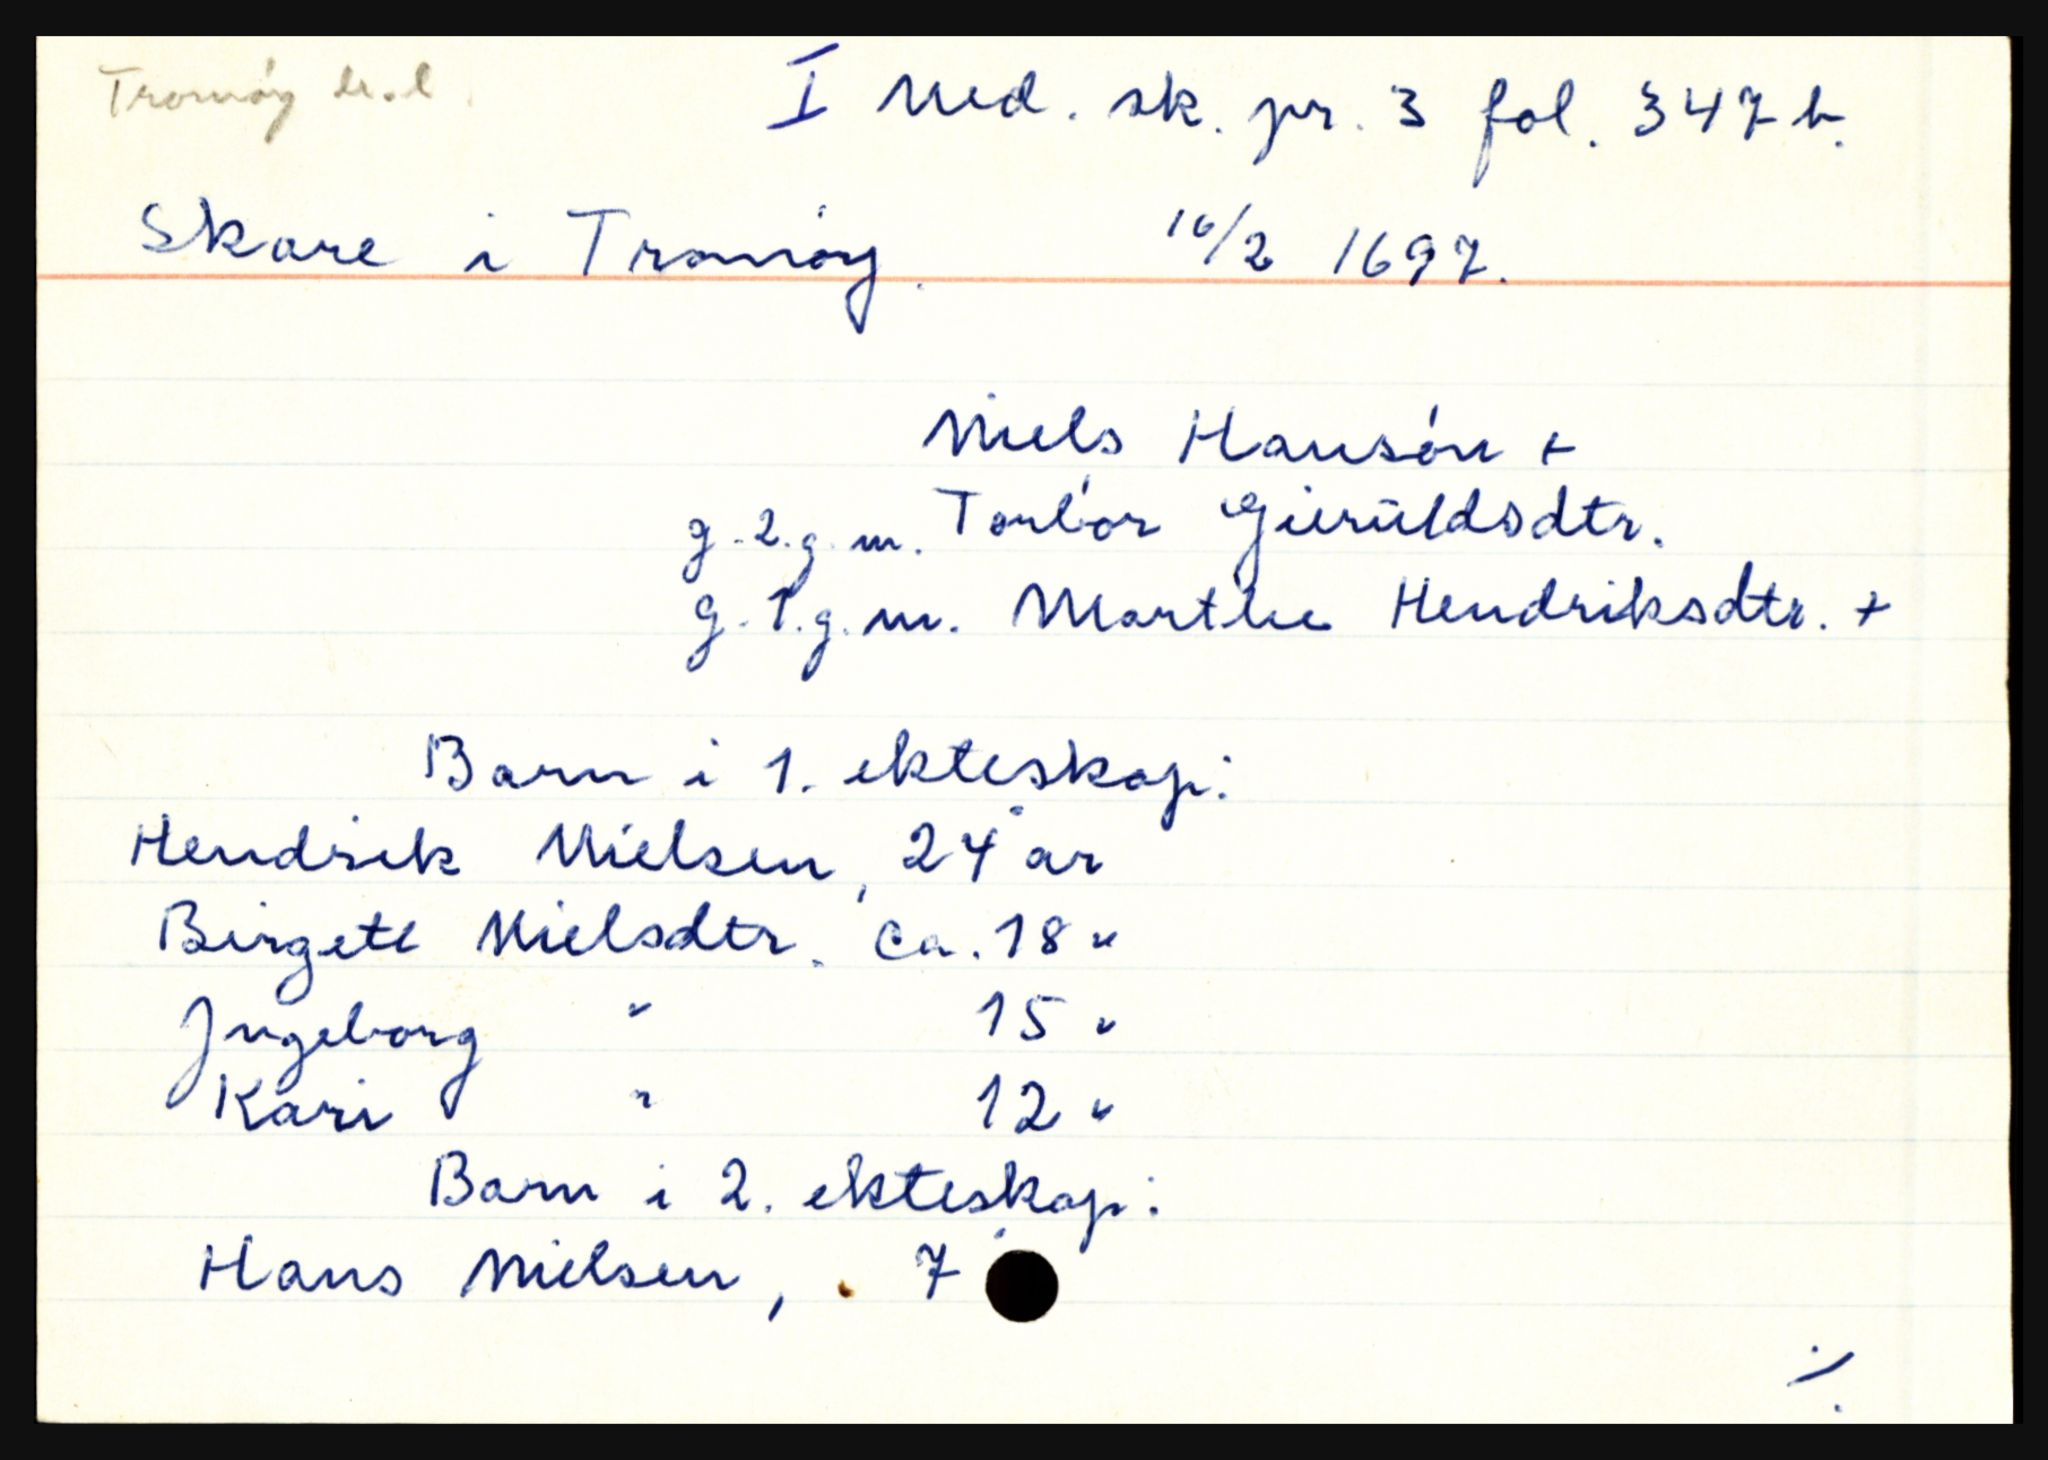 Tromøy
I Ned. sk. pr. 3 fol. 347 b.
Skare i Tromøy. 16/2 1697.
Niels Hansøn +
g. 2. g. m. Torbor Gierúldsdtr.
g. 1. g. m. Marthe Hendriksdtr. +
Barn i 1. ekteskap:
Hendrik Nielsen, 24 år
Birgete Nielsdtr. ca. 18 "
Ingeborg " 15 "
Kari " 12 "
Barn i 2. ekteskap:
Hans Nielsen, 7
./.